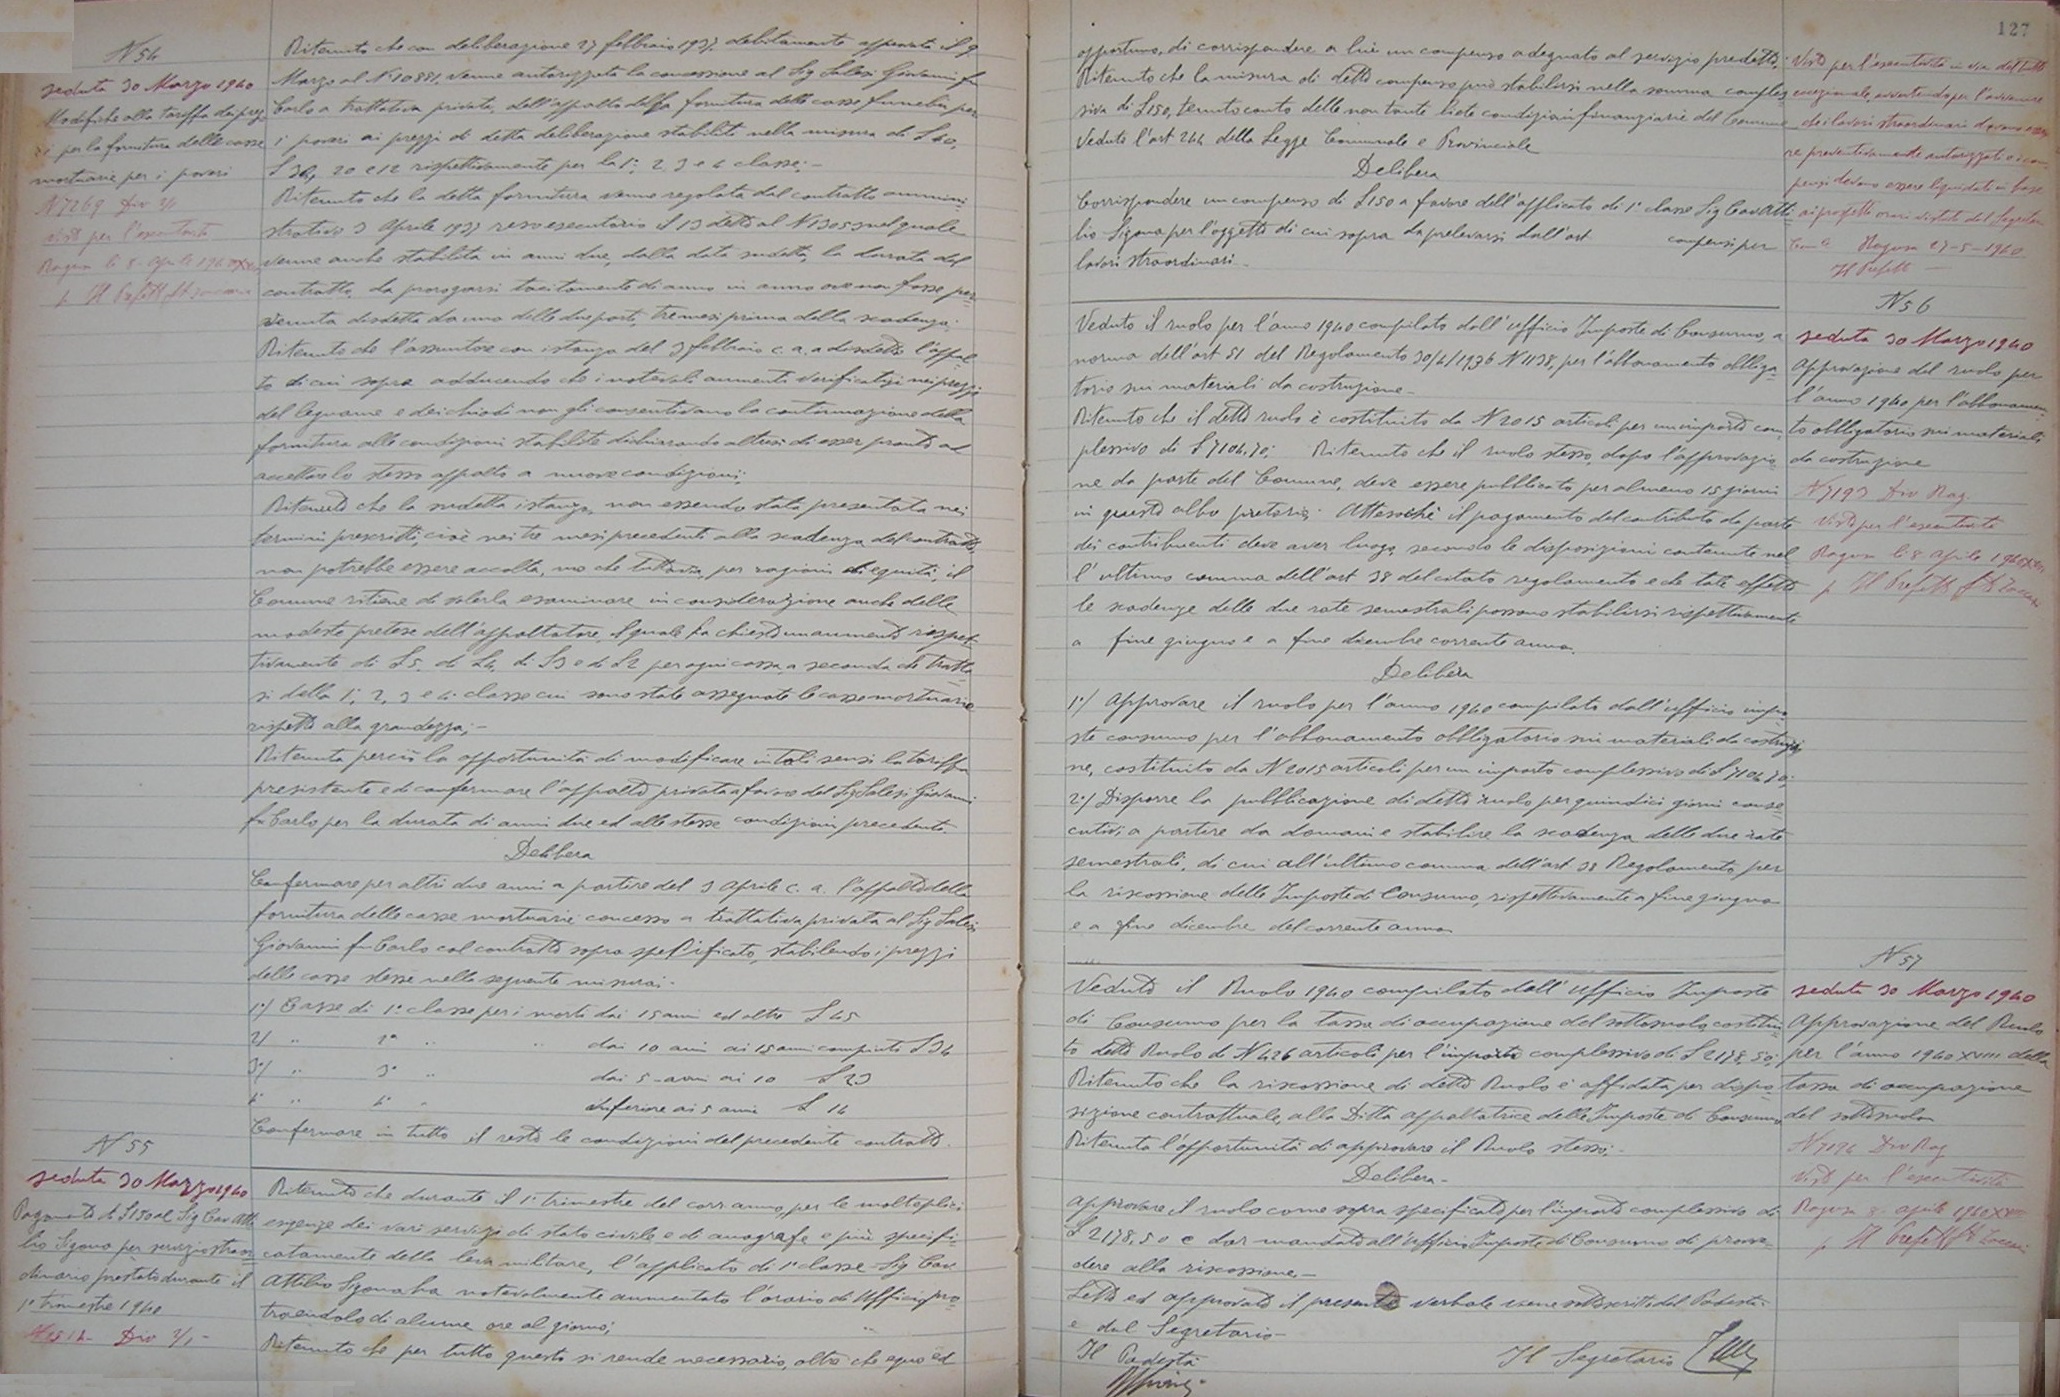 N 54
seduta 30 Marzo 1940
Modifiche alla tariffa dei prez
zi per la fornitura delle casse
mortuarie per i poveri
N 7269 Div 2/1
visto per l'esecutorietà
Ragusa li 8 Aprile 1940 XVIII
p Il Prefetto
Ritenuto che con deliberazione 27 febbraio 1937, debitamente approvata il 9
Marzo al N° 10881, venne autorizzata la concessione al Sig Salesi Giovanni fu
Carlo a trattativa privata, dell'appalto della fornitura delle casse funebri per
i poveri ai prezzi di detta deliberazione stabiliti nella misura di £ 40,
£ 30, 20 e 12 rispettivamente per la 1ª, 2, 3 e 4 classe;-
Ritenuto che la detta fornitura venne regolata dal contratto ammini
strativo 3 Aprile 1937 reso esecutorio il 13 detto al N 13053 nel quale
venne anche stabilita in anni due, dalla data suddetta, la durata del
contratto, da prorogarsi tacitamente di anno in anno ove non fosse per
venuta disdetta da una delle due parti, tre mesi prima della scadenza.
Ritenuto che l'assuntore con istanza del 3 febbraio c. a. a disdetto l'appal
to di cui sopra adducendo che i notevoli aumenti verificatisi nei prezzi
del legname e dei chiodi non gli consentivano la continuazione della
fornitura alle condizioni stabilite dichiarando altresì di esser pronto ad
accettare lo stesso appalto a nuove condizioni;
Ritenuto che la suddetta istanza, non essendo stata presentata nei
termini prescritti, cioè nei tre mesi precedenti alla scadenza del contratto,
non potrebbe essere accolta, ma che tuttavia, per ragioni di equità, il
Comune ritiene di volerla esaminare in considerazione anche delle
modeste pretese dell'appaltatore, il quale ha chiesto un aumento rispet-
tivamente di £ 5, di £ 4, di £ 3 e di £ 2 per ogni cassa, a seconda che tratta
si della 1ª, 2, 3 e 4ª classe cui sono state assegnate le casse mortuarie
rispetto alla grandezza;-
Ritenuta perciò la opportunità di modificare in tali sensi la tariffa
presistente e di confermare l'appalto privato a favore del Sig Salesi Giovanni
fu Carlo per la durata di anni due ed alle stesse condizioni precedenti
Delibera
Confermare per altri due anni a partire del 3 Aprile c. a. l'appalto della
fornitura delle casse mortuarie concesso a trattativa privata al Sig Salesi
Giovanni fu Carlo col contratto sopra specificato, stabilendo i prezzi
delle casse stesse nella seguente misura:-
1°/ Casse di 1ª classe per i morti dai 15 anni ed oltre £ 45
2/ " 2ª " " dai 10 anni ai 15 anni compiuti £ 34
3°/ " 3ª " dai 5 anni ai 10 £ 23
4° " 4ª " inferiore ai 5 anni £ 14
Confermare in tutto il resto le condizioni del precedente contratto.
N 55
seduta 30 Marzo 1940
Pagamento di £ 150 al Sig Cav Atti
lio Sigona per servizio straor
dinario prestato durante il
1° trimestre 1940
Div 2/1 -
Ritenuto che durante il 1° trimestre del corr. anno, per le molteplici
esigenze dei vari servizi di stato civile e di anagrafe e più specifi-
catamente della leva militare, l'applicato di 1ª classe Sig Cav
Attilio Sigona ha notevolmente aumentato l'orario di Ufficio pro
traendolo di alcune ore al giorno;
Ritenuto che per tutto questo si rende necessario, oltre che equo ed
127
opportuno, di corrispondere a lui un compenso adeguato al servizio predetto;
Ritenuto che la misura di detto compenso può stabilirsi nella somma comples
siva di £ 150, tenuto conto delle non tante liete condizioni finanziarie del Comune
Veduto l'art 244 della Legge Comunale e Provinciale
Delibera
Corrispondere un compenso di £ 150 a favore dell'applicato di 1ª classe Sig Cav Atti
lio Sigona per l'oggetto di cui sopra da prelevarsi dall'art compensi per
lavori straordinari.-
Visto per l'esecutorietà in via del tutto
eccezionale, avvertendo per l'avvenire
che i lavori straordinari devono esse
re preventivamente autorizzati e i com
pensi devono essere liquidati in base
ai prospetti orari vistati dal Segretario
Com le Ragusa 27-5-1940
Il Prefetto -
N 56
seduta 30 Marzo 1940
Approvazione del ruolo per
l'anno 1940 per l'abbonamen
to obbligatorio sui materiali
da costruzione
N 7193 Div Rag.
Visto per l'esecutorietà
Ragusa li 8 Aprile 1940 XVIII
p Il Prefetto
Veduto il ruolo per l'anno 1940 compilato dall'ufficio Imposte di Consumo, a
norma dell'art 51 del Regolamento 30/4/1936 N 1138, per l'abbonamento obbliga-
torio sui materiali da costruzione -
Ritenuto che il detto ruolo è costituito da N 2015 articoli per un importo com
plessivo di £ 7104,70; Ritenuto che il ruolo stesso, dopo l'approvazio
ne da parte del Comune, deve essere pubblicato per almeno 15 giorni
in questo albo pretorio; Attesochè il pagamento del contributo da parte
dei contribuenti deve aver luogo, secondo le disposizioni contenute nel
l'ultimo comma dell'art 38 del citato regolamento e che tale effetto
le scadenze delle due rate semestrali possono stabilirsi rispettivamente
a fine giugno e a fine dicembre corrente anno.
Delibera
1°/ Approvare il ruolo per l'anno 1940 compilato dall'ufficio impo
ste consumo per l'abbonamento obbligatorio sui materiali da costruzio
ne, costituito da N 2015 articoli per un importo complessivo di £ 7104,70;
2°/ Disporre la pubblicazione di detto ruolo per quindici giorni conse
cutivi, a partire da domani e stabilire la scadenza delle due rate
semestrali, di cui all'ultimo comma dell'art 38 Regolamento per
la riscossione delle Imposte di Consumo, rispettivamente a fine giugno
e a fine dicembre del corrente anno
N 57
seduta 30 Marzo 1940
Approvazione del Ruolo
per l'anno 1940 XVIII della
tassa di occupazione
del sottosuolo
N 7194 Div Rag
Visto per l'esecutorietà
Ragusa 8 aprile 1940 XVIII
p Il Prefetto
Veduto il Ruolo 1940 compilato dall'Ufficio Imposte
di Consumo per la tassa di occupazione del sottosuolo, costitui
to detto Ruolo di N 426 articoli per l'importo complessivo di £ 2178,50;
Ritenuto che la riscossione di detto Ruolo è affidata per dispo
sizione contrattuale, alla Ditta appaltatrice delle Imposte di Consumo
Ritenuta l'opportunità di approvare il Ruolo stesso;-
Delibera -
Approvare il ruolo come sopra specificato per l'importo complessivo di
£ 2178,50 e dar mandato all'Ufficio Imposte di Consumo di provve-
dere alla riscossione.-
Letto ed approvato il presente verbale viene sottoscritto dal Podestà
e dal Segretario -
Il Podestà
Il Segretario